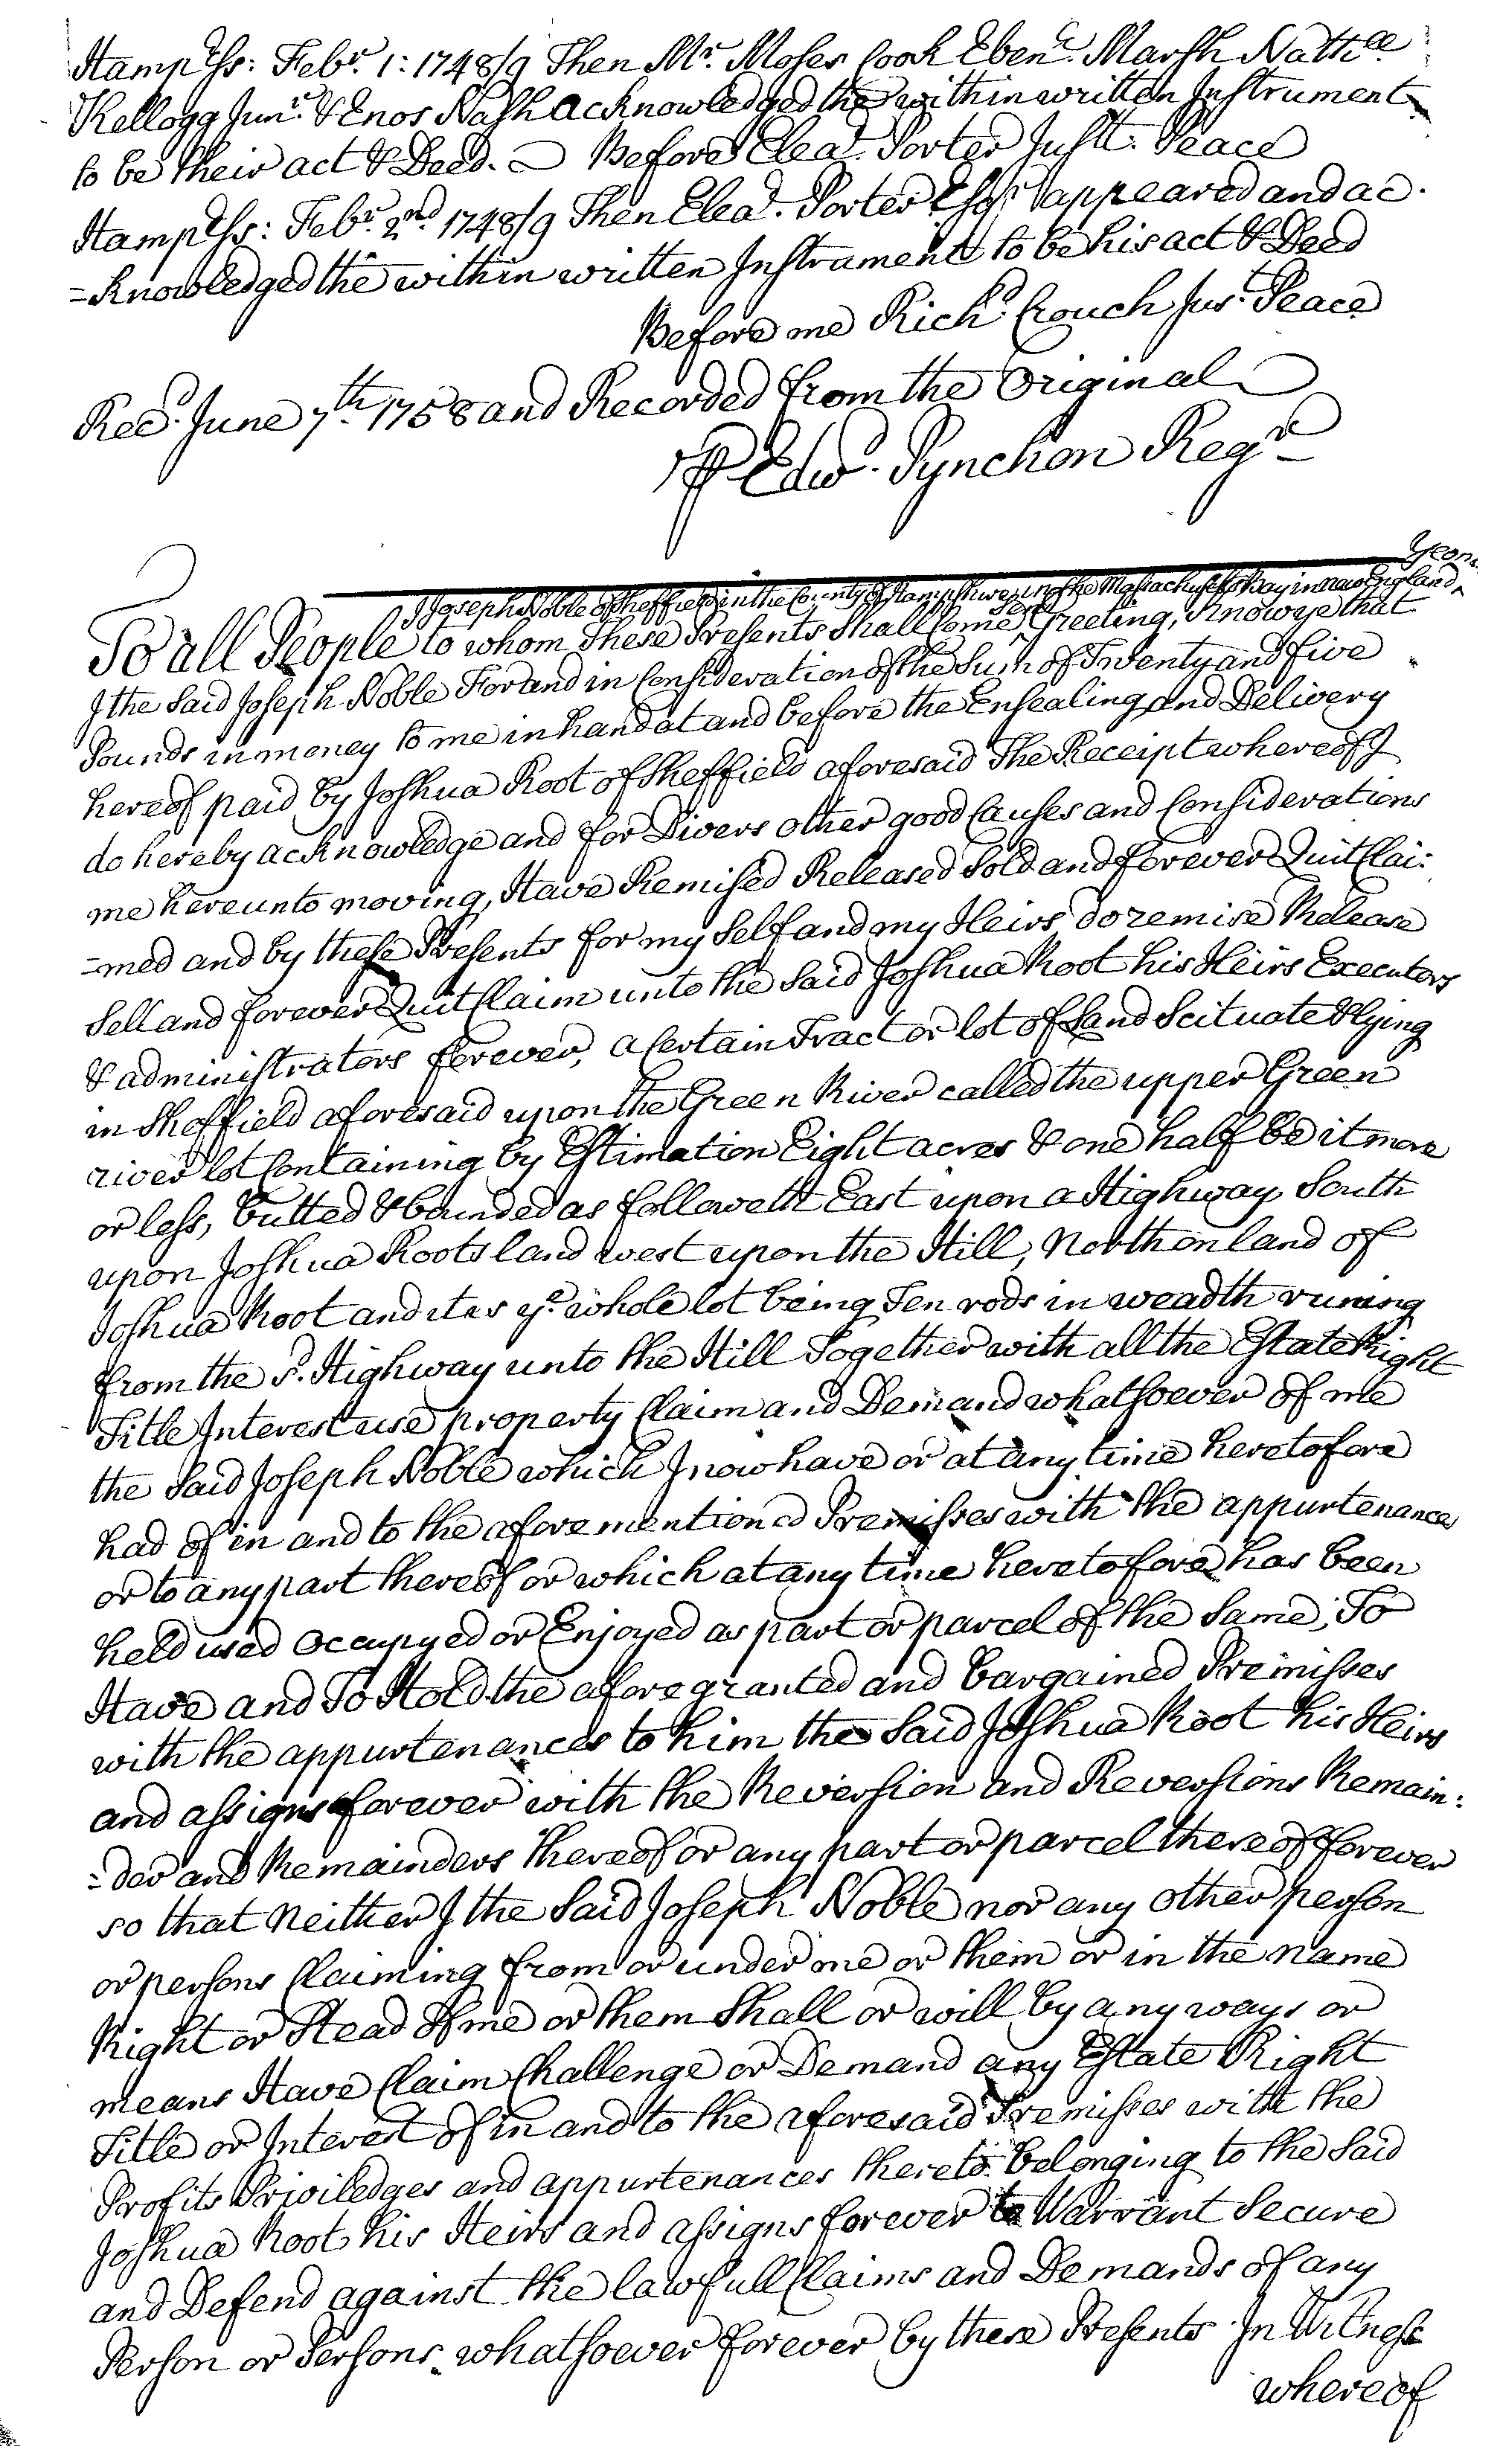 Hampsh ss: Febr. 1: 1748/9 Then Mr. Moses Cook Ebenr. Marsh Nathll
Kellogg Junr. & Enos Nash acknowledged the within written Instrument
to be their act & Deed. Before Elea. Porter Just. Peace
Hampsh ss: Febr. 2nd 1748/9 Then Elea. Porter Esqr. appeared and ac.
=knowledged the within written Instrument to be his act & Deed
Before me Richd. Crouch Jus. Peace
Recd. June 7th. 1758 and Recorded from the Original
P Edwd. Pynchon Regr
Yeom
I Joseph Noble of Sheffield in the County of Hampshire in ye Massachusetts Bay in New England ^
To all People to whom these Presents Shall Come Greeting, Know ye that
I the Said Joseph Noble For and in Consideration of the Sum of Twenty and five
Pounds in money to me in hand at and before the Ensealing and Delivery
hereof paid by Joshua Root of Sheffield aforesaid The Receipt whereof I
do hereby acknowledge and for Divers other good Causes and Considerations
me hereunto moving, Have Remised Released Sold and forever Quit Clai:
=med and by these Presents for my Self and my Heirs do remise Release
Sell and forever Quit Claim unto the Said Joshua Root his Heirs Executors
& administrators forever, a Certain Tract or lot of Land Scituate & lying
in Sheffield aforesaid upon the Green River called the upper Green
river lot Containing by Estimation Eight acres & one half be it more
or less, butted & bounded as followeth East upon a Highway South
upon Joshua Roots land west upon the Hill, North on land of
Joshua Root and it is ye. whole lot being Ten rods in weadth runing
from the sd. Highway unto the Hill Together with all the Estate Right
Title Interest use property Claim and Demand whatsoever of me
the Said Joseph Noble which I now have or at any time heretofore
had of in and to the afore mentioned Premisses with the appurtenances
or to any part thereof or which at any time heretofore has been
held used Occupyed or Enjoyed as part or parcel of the Same, To
Have and To Hold the afore granted and bargained Premisses
with the appurtenances to him the Said Joshua Root his Heirs
and assigns forever with the Reversion and Reversions Remain:
=der and Remainders thereof or any part or parcel thereof forever
so that Neither I the Said Joseph Noble nor any other person
or persons Claiming from or under me or them or in the name
Right or Stead of me or them Shall or will by any ways or
means Have Claim Challenge or Demand any Estate Right
Title or Interest of in and to the aforesaid Premisses with the
Profits Priviledges and appurtenances thereto belonging to the Said
Joshua Root his Heirs and assigns forever to Warrant Secure
and Defend against the lawfull Claims and Demands of any
Person or Persons whatsoever forever by these Presents In Witness
whereof